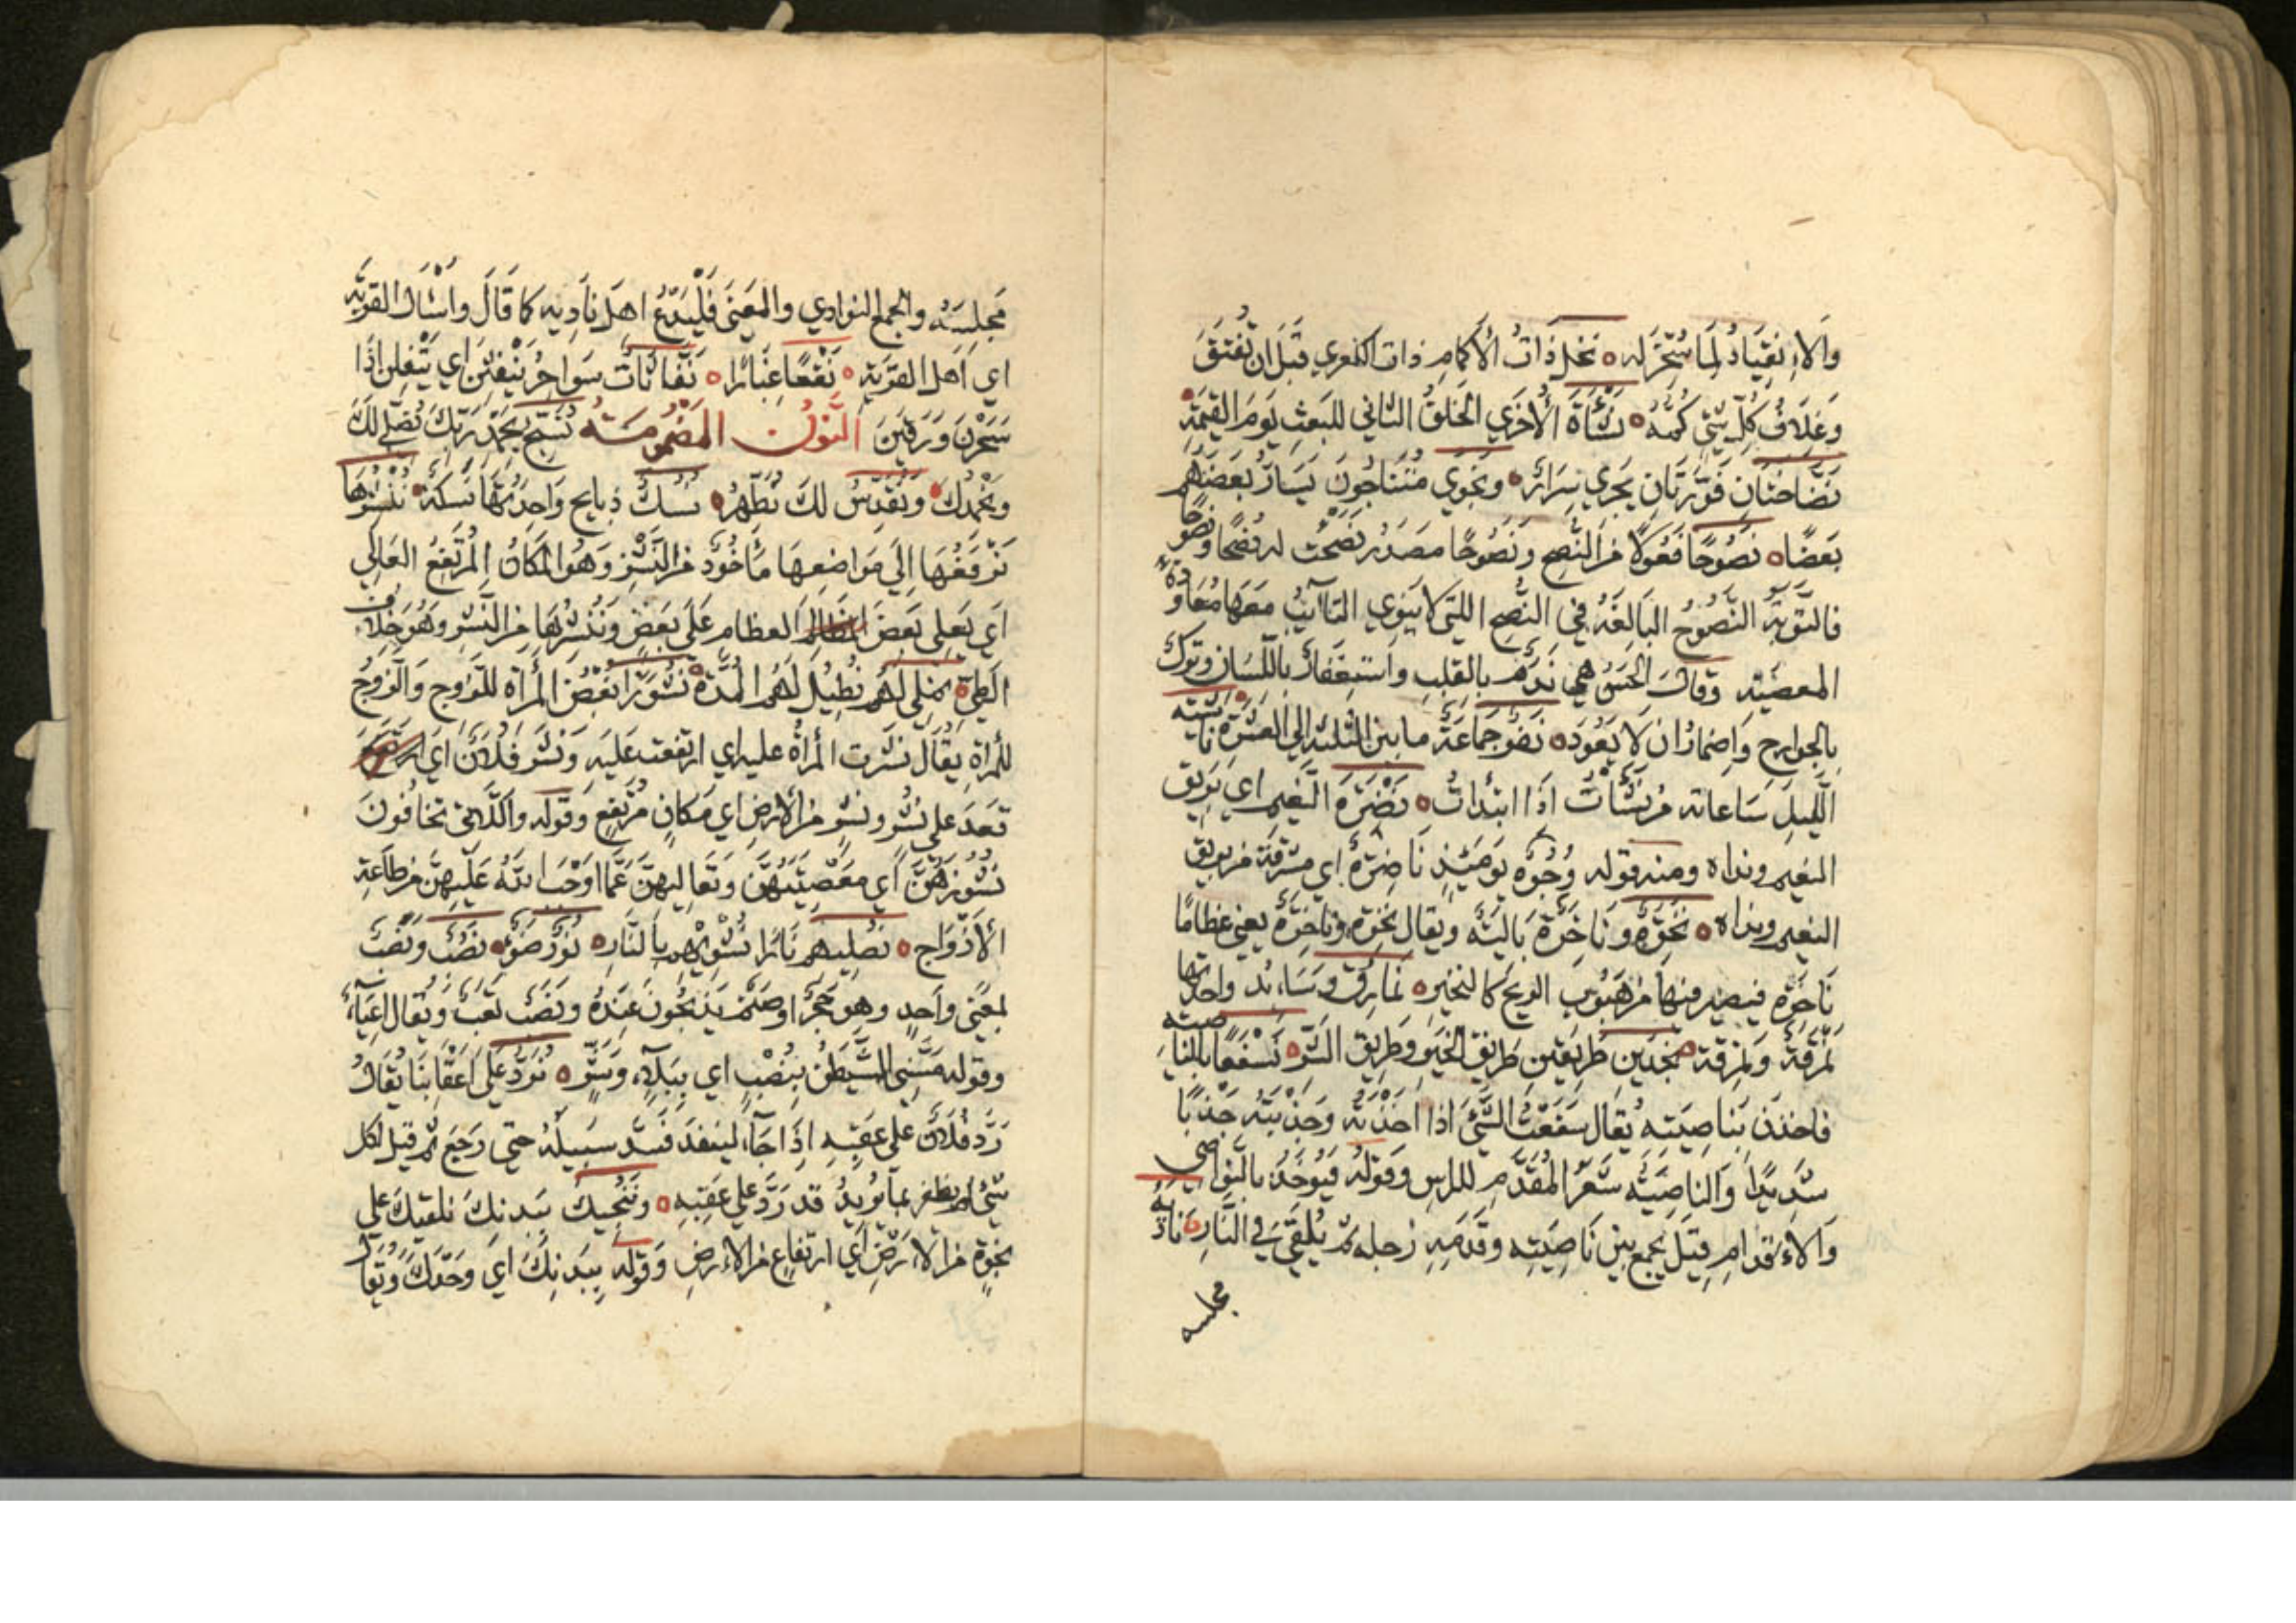 والانقياد لما سُخّر له ه نخل ذات الأكمام ذات الكفري قبل ان تفتق
وغلاف كل شي كمه ه نشأة الأخرى الخلق الثاني للبعث يوم القيمة
نضاختان فوّارتان يجري سرائر ه ونجوي متناجون يسارّ بعضهم
بعضا ه نصوحا فعولا من النصح ونصوحا مصدر نصحت له نصحا ونصوحا
فالتوبة النصوح البالغة في النصح اللتي لا ينوي التائب معها معاودة
المعصية وقال الحسن هي ندم بالقلب واستغفار باللسان وترك
بالجوارح واضمار ان لا يعود ه نفر جماعة ما بين الثلثة الى العشرة ه ناشئة
الليل ساعاته من نشأت اذا ابتدات ه نضرة النعيم اي بريق
النعيم ونداه ومنه قوله وجوه يومئذ ناضرة اي مشرقة من بريق
النعيم ونداه ه نخرة وناخرة بالية ويقال نخرة وناخرة يعني عظاما
ناخرة فيصير فيها من هبوب الريح كالنخير ه نمارق وسائد واحدتها
نمرقة ونمرقة ه نجدين طريقين طريق الخير وطريق الشر ه نسفعا بالناصية
فاخذن بناصيته يقال سفعت الشئ اذا اخذته وجذبته جذبا
شديدا والناصية شعر المقدم للراس وقوله فيوخذ بالنواصي
والاقدام قيل يجمع بين ناصيته وقدمه رجله ثم يلقى في النار ه نادية
مجلسه
مجلسه والجمع النوادي والمعنى فليدع اهل ناديه كما قال واسئال القرية
اي اهل القرية ه نقعا غبارا ه نفاثات سواحر ينفثن اي يتفلن اذا
سحرن ورقين النون المضمومة نسبح بحمدربك نصلي لك
ونحمدك ه ونقدس لك نطهر ه نسك ذبايح واحدتها نسكة ه ننشزها
نرفعها الى مواضعها مأخوذ من النشز وهو المكان المرتفع العالي
اي يعلى بعض العظام على بعض وننشرها من النشر وهو خلاف
الطي ه نملي لهم نطيل لهم المدة ه نشوزا بغض المرأة للزوج والزوج
للمراة يقال نشزت المرأة عليه اي ارتفعت عليه ونشز فلان اي
قعد على نشز ونشز من الارض اي مكان مرتفع وقوله واللاتي تخافون
نشوزهن اي معصيتهن وتعاليهن عما اوجب الله عليهن من طاعة
الازواج ه نصليهم نارا نشويهم بالنار ه نور ضوء ه نصب ونصب
لمعنى واحد وهو حجر او صنم يذبحون عنده ونصب تعب ويقال اعياء
وقوله مسني الشيطن بنصب اي ببلاء وشر ه نرد على اعقابنا يقال
رد فلان على عقبه اذا جاء لينفذ فسد سبيله حتى رجع ثم قيل لكل
شئ لم يظفر بما يريد قد رد على عقبه ه وننجيك ببدنك نلقيك على
نجوة من الارض اي ارتفاع من الارض وقوله ببدنك اي وحدك ويقال